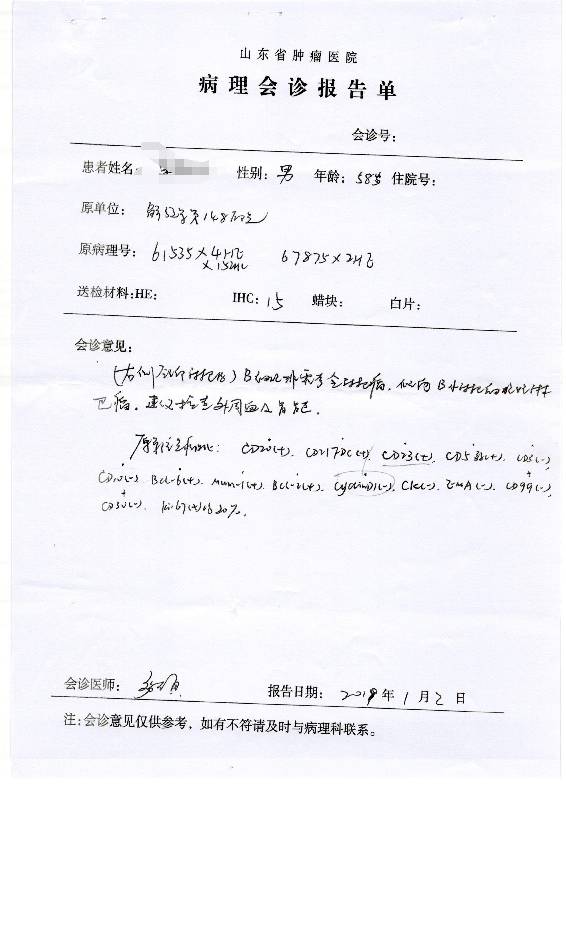 山东省肿瘤医院
病理会诊报告单
会诊号：
患者姓名： 性别：男 年龄：58岁 住院号：
原单位： 解放军第148医院
原病理号：61535×4HE 67875×2HE
×15IHC
送检材料:HE： IHC：15 蜡块： 白片：
会诊意见：
B细胞非霍奇金淋巴瘤，B小淋巴细胞性淋
巴瘤，建议检查外周血及骨髓。
CD20(+)、CD21 FDC(+)、CD23(+)、CD5(+)、CD3(-)
CD10(-)、Bcl-6(+)、Mum-1(+)、Bcl-2(+)、CyclinD1(-)、CK(-)、EMA(-)、CD99(-)
CD30(-)、Ki-67(+)约20%。
会诊医师： 报告日期： 2019年1月2日
注:会诊意见仅供参考，如有不符请及时与病理科联系。